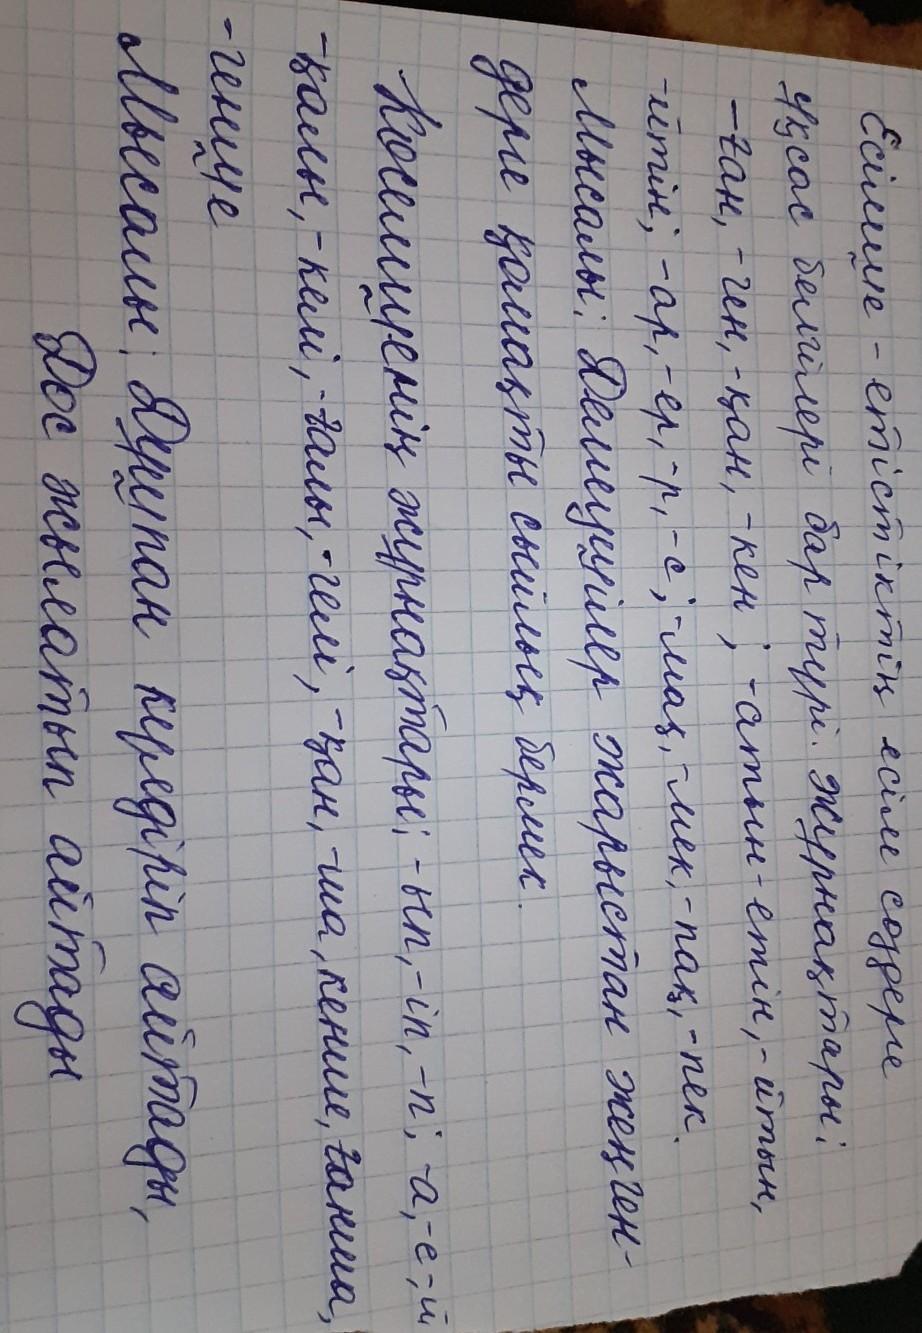 Есімше - етістіктің есім сөзрге
ұқсас белгілері бар түрі. Жұрнақтары:
-ған, -ген, -қан, -кен; -атын-етін, -йтын,
-йтін; -ар, -ер, -р, -с; -мақ, -мек, -пақ, -пек.
Мысалы: Демеушілер жарыстан жеңген-
дерге қомақты сыйлық бермек.
Көсемшенің жұрнақтары: -ып, -іп, -п; -а, -е -й
-қалы, -келі, -ғалы, -гелі, -қан, -ша, кенше, ғанша,
-генше
Мысалы: Дұшпан күлдіріп айтады,
Дос жылатып айтады